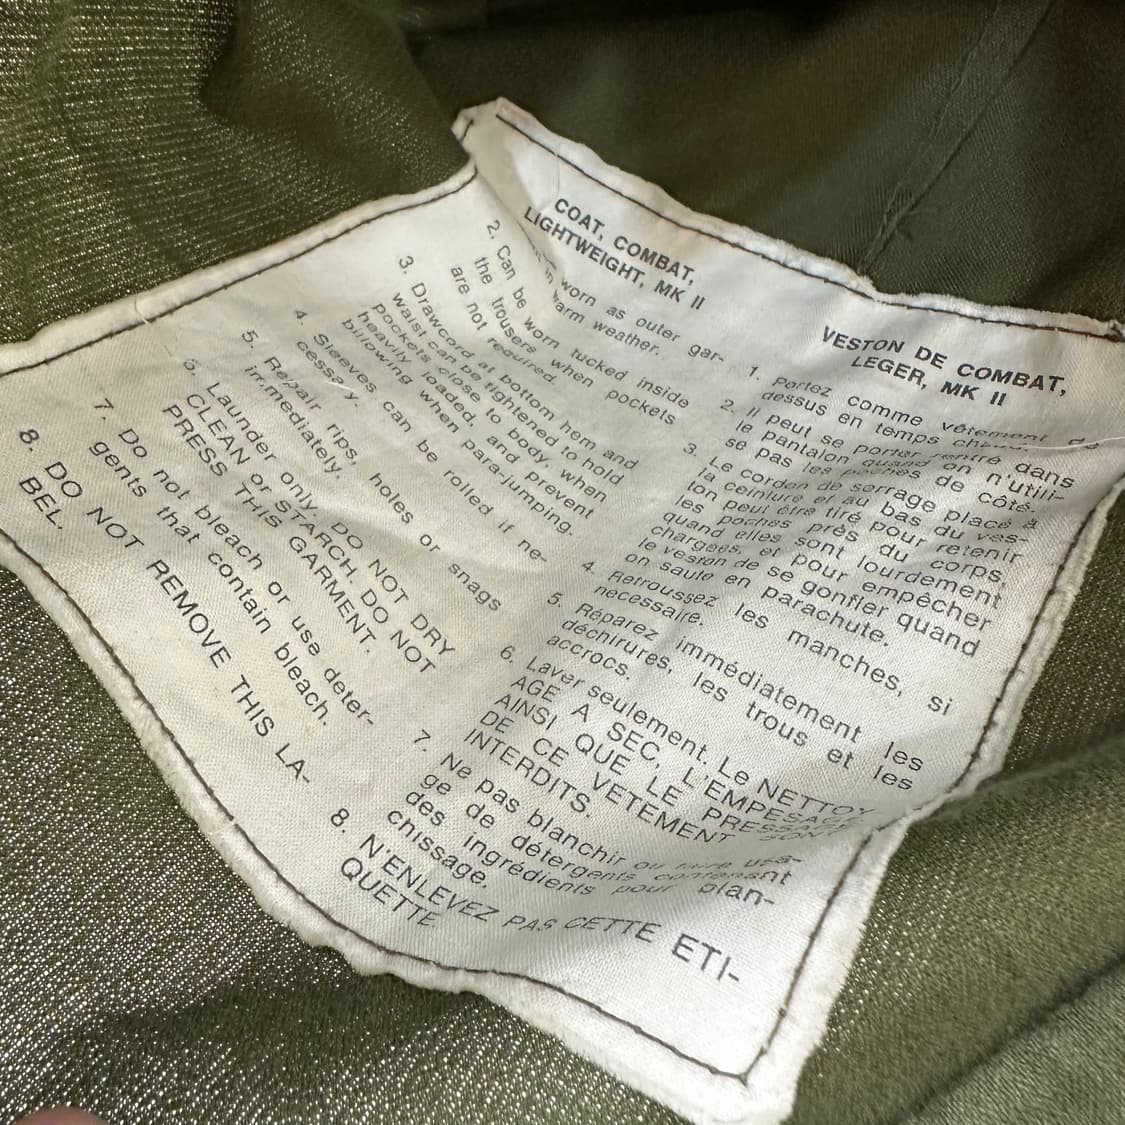 COAT, COMBAT,
LIGHTWEIGHT, MK II
worn as outer gar-
in warm weather.
2. Can be worn tucked inside
the trousers when pockets
are not required.
3. Drawcord at bottom hem and
waist can be tightened to hold
pockets close to body, when
heavily loaded, and prevent
billowing when para-jumping.
4. Sleeves can be rolled if ne-
cessary.
5. Repair rips, holes or snags
immediately.
6. Launder only. DO NOT DRY
CLEAN or STARCH. DO NOT
PRESS THIS GARMENT.
7. Do not bleach or use deter-
gents that contain bleach.
8. DO NOT REMOVE THIS LA-
BEL.
VESTON DE COMBAT,
LEGER, MK II
1. Portez comme vêtement de
dessus en temps chaud.
2. Il peut se porter rentré dans
le pantalon quand on n'utili-
se pas les poches de côté.
3. Le cordon de serrage placé à
la ceinture et au bas du ves-
ton peut être tiré pour retenir
les poches près du corps,
quand elles sont lourdement
chargées, et pour empêcher
le veston de se gonfler quand
on saute en parachute.
4. Retroussez les manches, si
necessaire.
5. Réparez immédiatement les
déchirures, les trous et les
accrocs.
6. Laver seulement. Le NETTOY
AGE A SEC, L'EMPESAGE
AINSI QUE LE PRESSAGE
DE CE VETEMENT SONT
INTERDITS.
7. Ne pas blanchir ou faire usa-
ge de détergents contenant
des ingrédients pour blan-
chissage.
8. N'ENLEVEZ PAS CETTE ETI-
QUETTE.